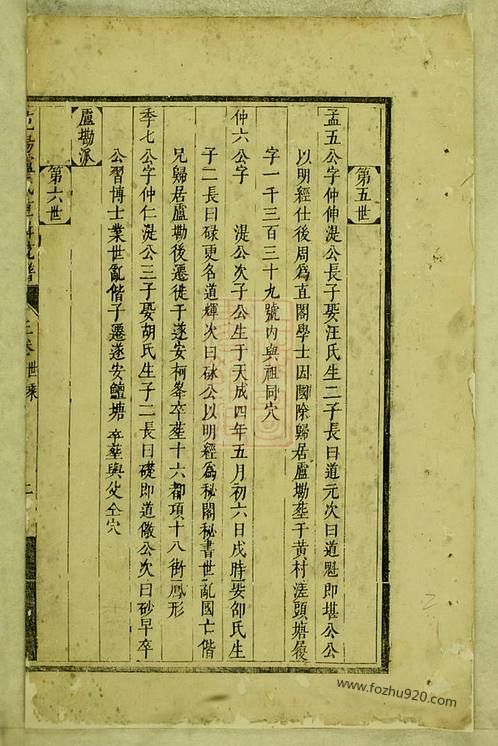 第五世
孟五公字仲伸湜公長子娶汪氏生二子長曰道元次曰道魁即堪公公
以明經仕後周為直閣學士因國除歸居盧坳塟于黄村涯頭塘
字一千三百三十九號内與祖同穴
仲六公字 湜公次子公生于天成四年五月初六日戌時娶邵氏生
子二長曰碌更名道輝次曰砅公以明經為秘閣秘書世亂國亡偕
兄歸居盧坳後遷徙于遂安柯峯卒塟十六都項十八衕鳳形
季七公字仲仁湜公三子娶胡氏生子二長曰礎即道儆公次曰砂早卒
公習博士業世亂偕子遷遂安鱣塘 卒塟與父仝穴
盧坳派
第六世
世系
www.fozhu920.com